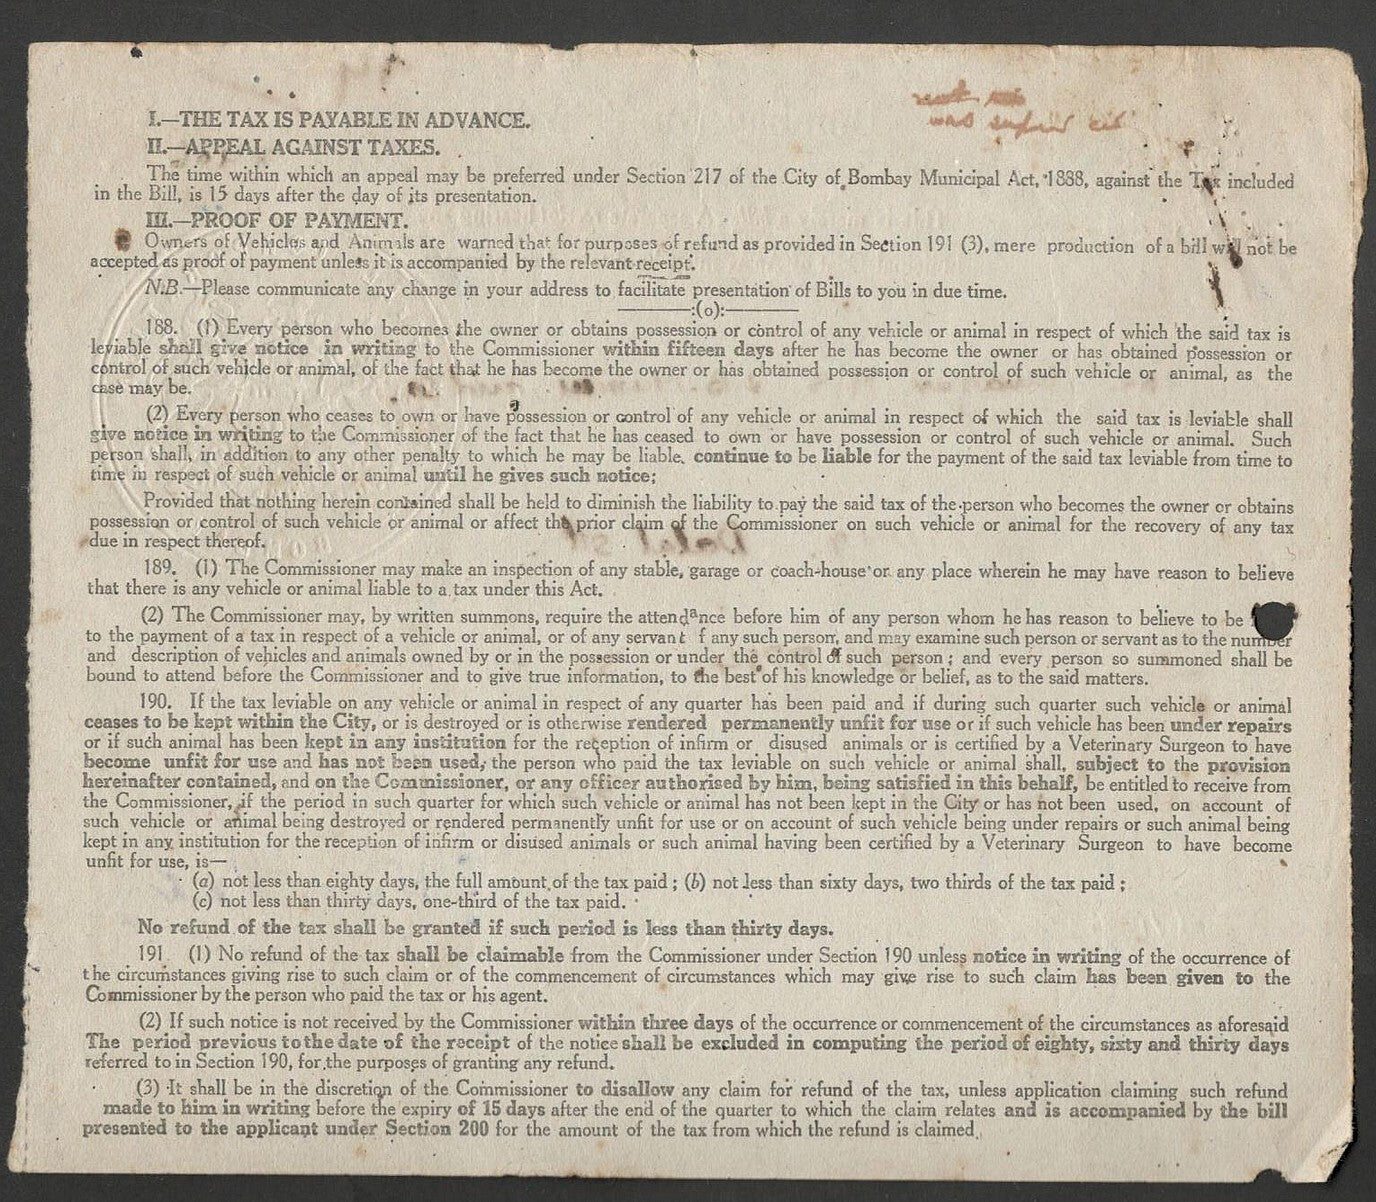 I.—THE TAX IS PAYABLE IN ADVANCE.
II.—APPEAL AGAINST TAXES.
The time within which an appeal may be preferred under Section 217 of the City of Bombay Municipal Act, 1888, against the Tax included
in the Bill, is 15 days after the day of its presentation.
III.—PROOF OF PAYMENT.
Owners of Vehicles and Animals are warned that for purposes of refund as provided in Section 191 (3), mere production of a bill will not be
accepted as proof of payment unless it is accompanied by the relevant receipt.
N.B.—Please communicate any change in your address to facilitate presentation of Bills to you in due time.
———:(o):———
188. (1) Every person who becomes the owner or obtains possession or control of any vehicle or animal in respect of which the said tax is
leviable shall give notice in writing to the Commissioner within fifteen days after he has become the owner or has obtained possession or
control of such vehicle or animal, of the fact that he has become the owner or has obtained possession or control of such vehicle or animal, as the
case may be.
(2) Every person who ceases to own or have possession or control of any vehicle or animal in respect of which the said tax is leviable shall
give notice in writing to the Commissioner of the fact that he has ceased to own or have possession or control of such vehicle or animal. Such
person shall, in addition to any other penalty to which he may be liable, continue to be liable for the payment of the said tax leviable from time to
time in respect of such vehicle or animal until he gives such notice;
Provided that nothing herein contained shall be held to diminish the liability to pay the said tax of the person who becomes the owner or obtains
possession or control of such vehicle or animal or affect the prior claim of the Commissioner on such vehicle or animal for the recovery of any tax
due in respect thereof.
189. (1) The Commissioner may make an inspection of any stable, garage or coach-house or any place wherein he may have reason to believe
that there is any vehicle or animal liable to a tax under this Act.
(2) The Commissioner may, by written summons, require the attendance before him of any person whom he has reason to believe to be
to the payment of a tax in respect of a vehicle or animal, or of any servant f any such person, and may examine such person or servant as to the number
and description of vehicles and animals owned by or in the possession or under the control of such person ; and every person so summoned shall be
bound to attend before the Commissioner and to give true information, to the best of his knowledge or belief, as to the said matters.
190. If the tax leviable on any vehicle or animal in respect of any quarter has been paid and if during such quarter such vehicle or animal
ceases to be kept within the City, or is destroyed or is otherwise rendered permanently unfit for use or if such vehicle has been under repairs
or if such animal has been kept in any institution for the reception of infirm or disused animals or is certified by a Veterinary Surgeon to have
become unfit for use and has not been used, the person who paid the tax leviable on such vehicle or animal shall, subject to the provision
hereinafter contained, and on the Commissioner, or any officer authorised by him, being satisfied in this behalf, be entitled to receive from
the Commissioner, if the period in such quarter for which such vehicle or animal has not been kept in the City or has not been used, on account of
such vehicle or animal being destroyed or rendered permanently unfit for use or on account of such vehicle being under repairs or such animal being
kept in any institution for the reception of infirm or disused animals or such animal having been certified by a Veterinary Surgeon to have become
unfit for use, is—
(a) not less than eighty days, the full amount of the tax paid ; (b) not less than sixty days, two thirds of the tax paid ;
(c) not less than thirty days, one-third of the tax paid.
No refund of the tax shall be granted if such period is less than thirty days.
191. (1) No refund of the tax shall be claimable from the Commissioner under Section 190 unless notice in writing of the occurrence of
the circumstances giving rise to such claim or of the commencement of circumstances which may give rise to such claim has been given to the
Commissioner by the person who paid the tax or his agent.
(2) If such notice is not received by the Commissioner within three days of the occurrence or commencement of the circumstances as aforesaid
The period previous to the date of the receipt of the notice shall be excluded in computing the period of eighty, sixty and thirty days
referred to in Section 190, for the purposes of granting any refund.
(3) It shall be in the discretion of the Commissioner to disallow any claim for refund of the tax, unless application claiming such refund
made to him in writing before the expiry of 15 days after the end of the quarter to which the claim relates and is accompanied by the bill
presented to the applicant under Section 200 for the amount of the tax from which the refund is claimed.